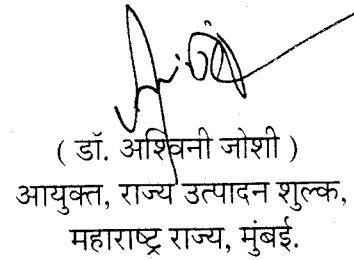 ( डॉ. अश्विनी जोशी )
आयुक्त, राज्य उत्पादन शुल्क,
महाराष्ट्र राज्य, मुंबई.